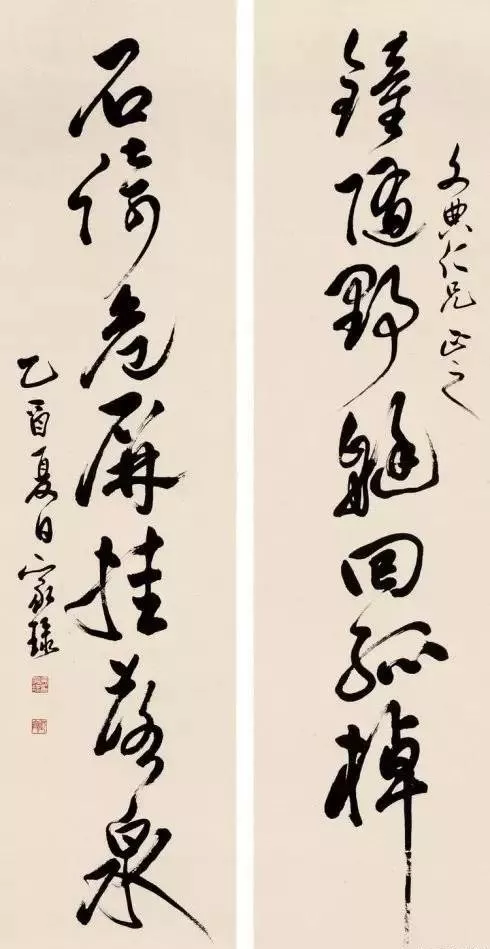 文典仁兄正之
鐘隨野艇回孤棹
石倚危屏挂落泉
乙酉夏日家